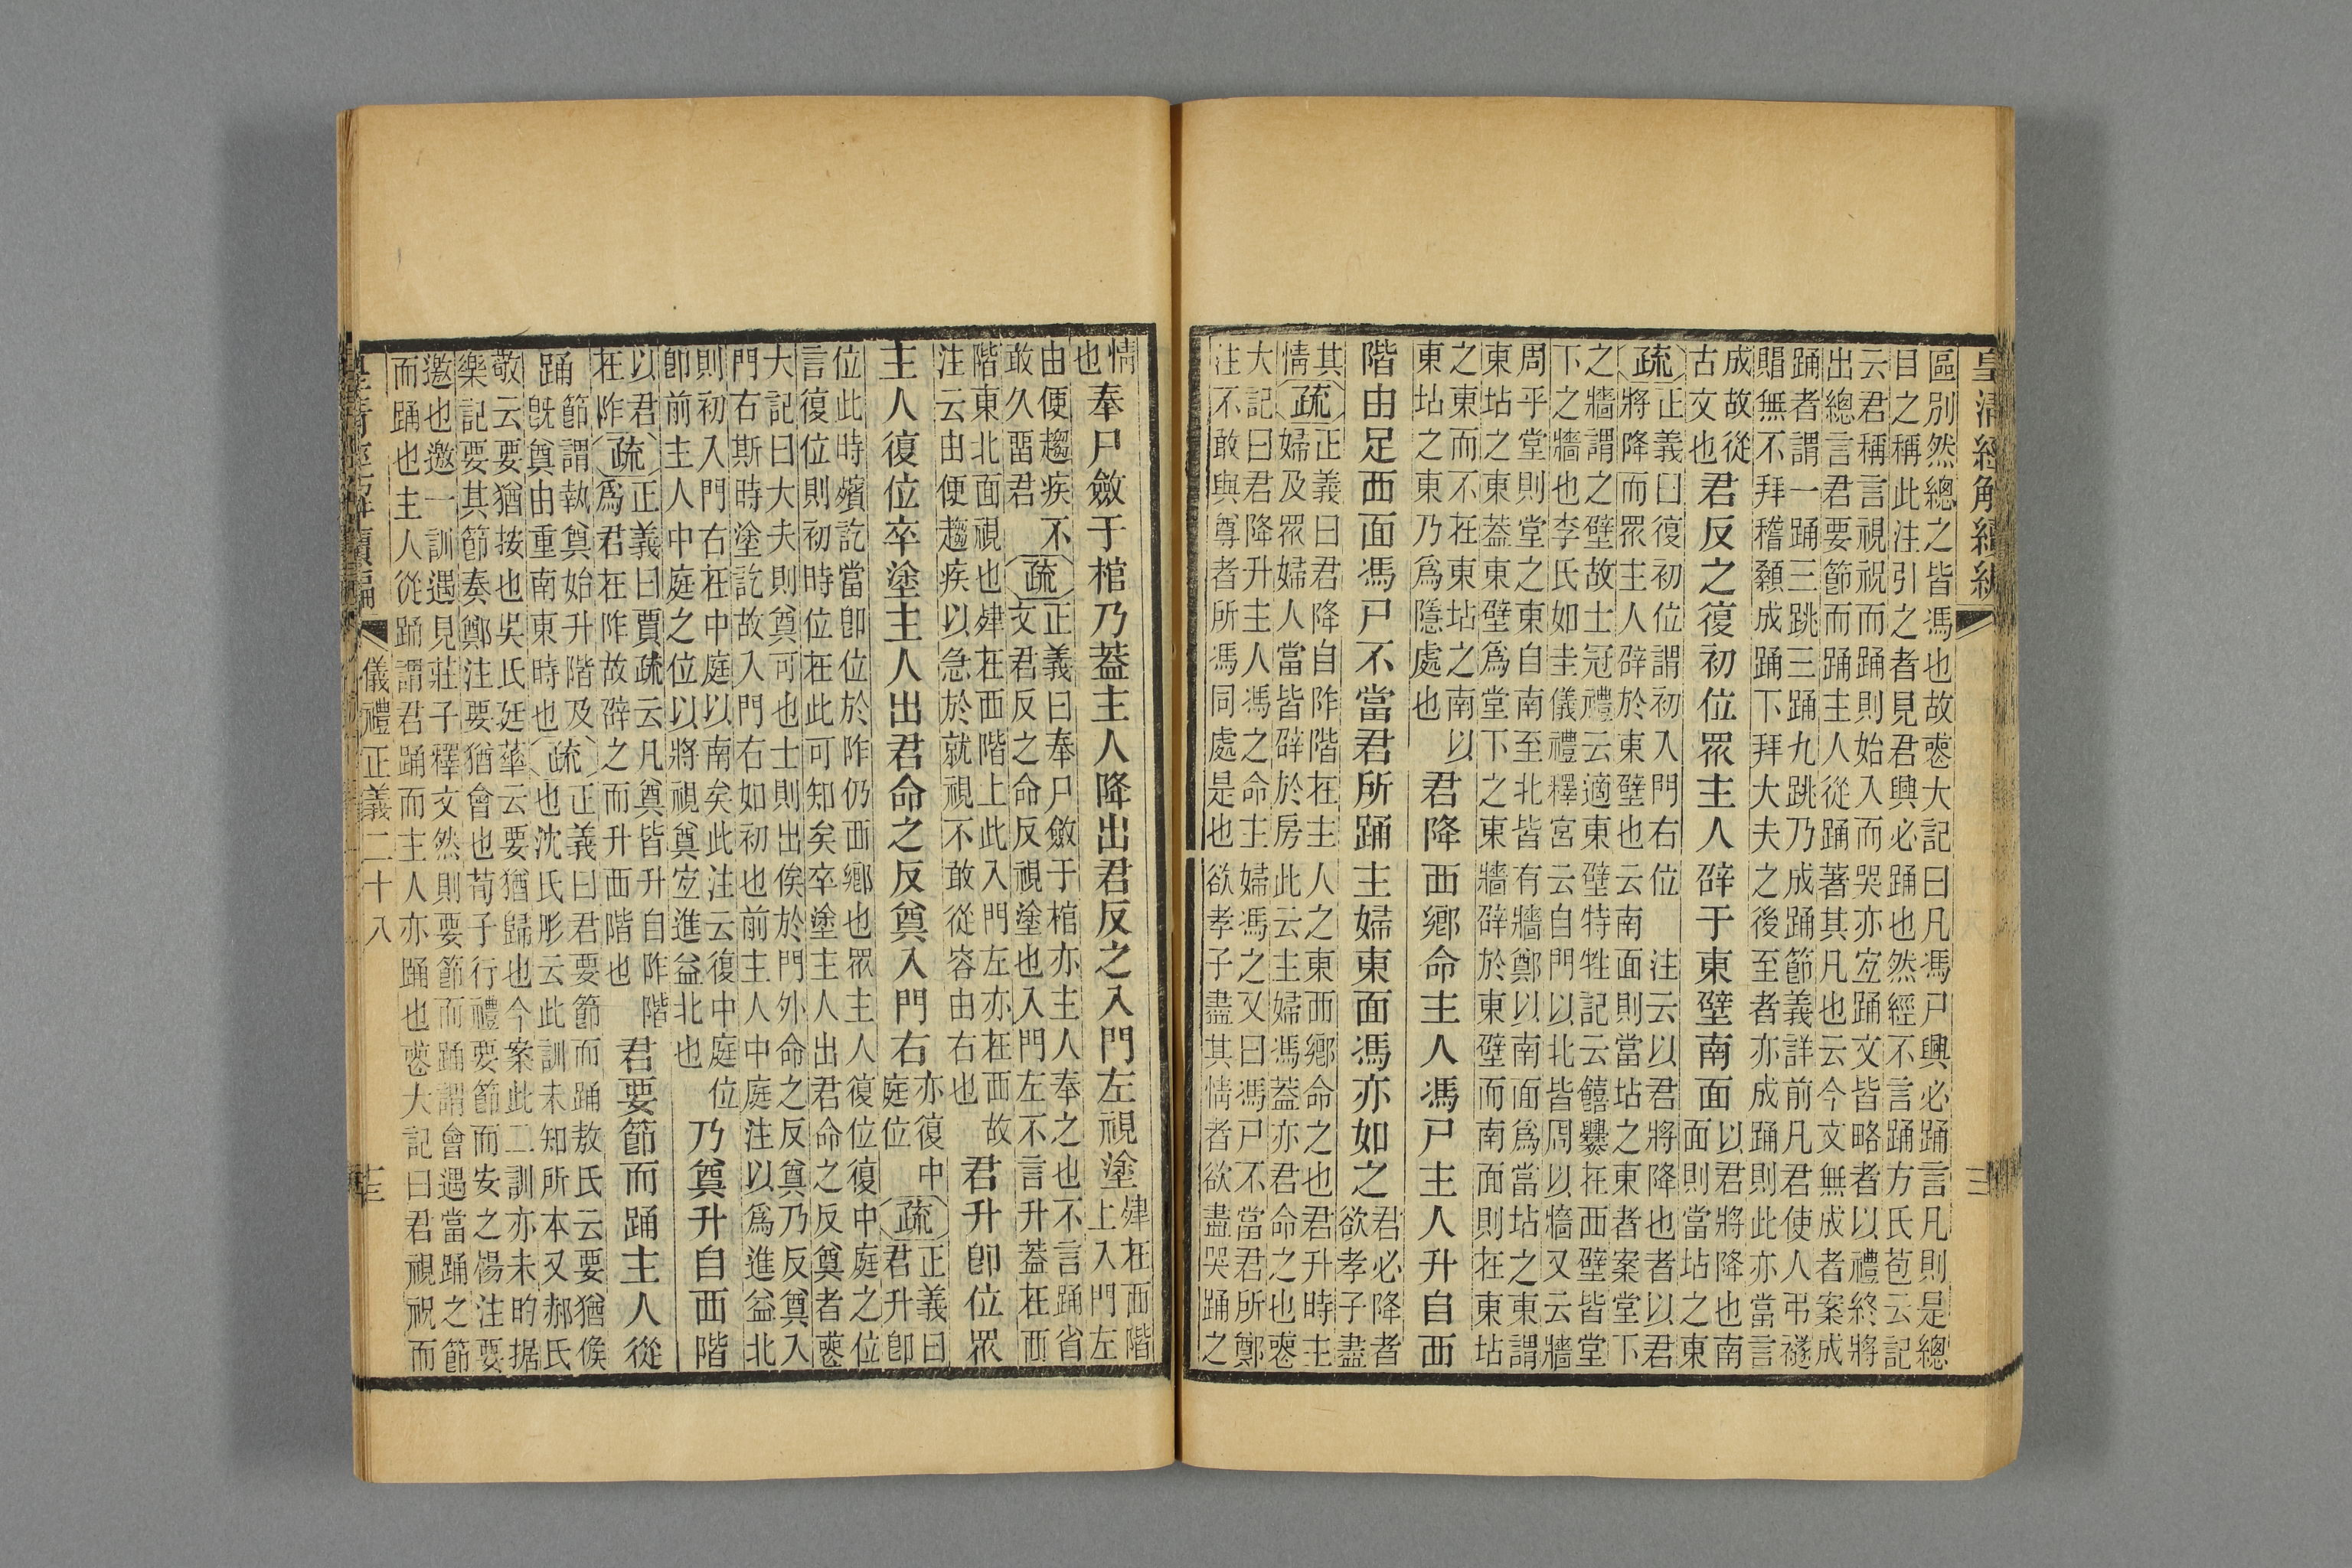 皇清經解續編
區別然總之皆馮也故䘮大記曰凡馮尸興必踊言凡則是總
目之稱此注引之者見君興必踊也然經不言踊方氏苞云記
云君稱言視祝而踊則始入而哭亦宐踊文皆略者以禮終將
出總言君要節而踊主人從踊著其凡也云今文無成者案成
踊者謂一踊三跳三踊九跳乃成踊節義詳前凡君使人弔襚
賵無不拜稽顙成踊下拜大夫之後至者亦成踊則此亦當言
成故從
古文也
君反之復初位眾主人辟于東壁南面
以君將降也南
面則當坫之東
疏
正義曰復初位謂初入門右位　注云以君將降也者以君
將降而眾主人辟於東壁也云南面則當坫之東者案堂下
之牆謂之壁故士冠禮云適東壁特牲記云饎爨在西壁皆堂
下之牆也李氏如圭儀禮釋宮云自門以北皆周以牆又云牆
周乎堂則堂之東自南至北皆有牆鄭以南面爲當坫之東謂
東坫之東蓋東壁爲堂下之東牆辟於東壁而南面則在東坫
之東而不在東坫之南以
東坫之東乃爲隱處也
君降西鄉命主人馮尸主人升自西
階由足西面馮尸不當君所踊主婦東面馮亦如之
君必降者
欲孝子盡
其
情
疏
正義曰君降自阼階在主人之東西鄉命之也君升時主
婦及眾婦人當皆辟於房此云主婦馮蓋亦君命之也䘮
大記曰君降升主人馮之命主婦馮之又曰馮尸不當君所鄭
注不敢與尊者所馮同處是也欲孝子盡其情者欲盡哭踊之
情
也
奉尸斂于棺乃蓋主人降出君反之入門左視塗
肂在西階
上入門左
由便趨疾不
敢久畱君
疏
正義曰奉尸斂于棺亦主人奉之也不言踊省
文君反之命反視塗也入門左不言升蓋在西
階東北面視也肂在西階上此入門左亦在西故
注云由便趨疾以急於就視不敢從容由右也
君升卽位眾
主人復位卒塗主人出君命之反奠入門右
亦復中
庭位
疏
正義曰
君升卽
位此時殯訖當卽位於阼仍西鄉也眾主人復位復中庭之位
言復位則初時位在此可知矣卒塗主人出君命之反奠者䘮
大記曰大夫則奠可也士則出俟於門外命之反奠乃反奠入
門右斯時塗訖故入門右如初也前主人中庭注以爲進益北
則初入門右在中庭以南矣此注云復中庭位
卽前主人中庭之位以將視奠宐進益北也
乃奠升自西階
以君
在阼
疏
正義曰賈疏云凡奠皆升自阼階
爲君在阼故辟之而升西階也
君要節而踊主人從
踊
節謂執奠始升階及
旣奠由重南東時也
疏
正義曰君要節而踊敖氏云要猶候
也沈氏彤云此訓未知所本又郝氏
敬云要猶按也吳氏廷華云要猶歸也今案此二訓亦未昀据
樂記要其節奏鄭注要猶會也荀子行禮要節而安之楊注要
邀也邀一訓遇見莊子釋文然則要節而踊謂會遇當踊之節
而踊也主人從踊謂君踊而主人亦踊也䘮大記曰君視祝而
儀禮正義二十八